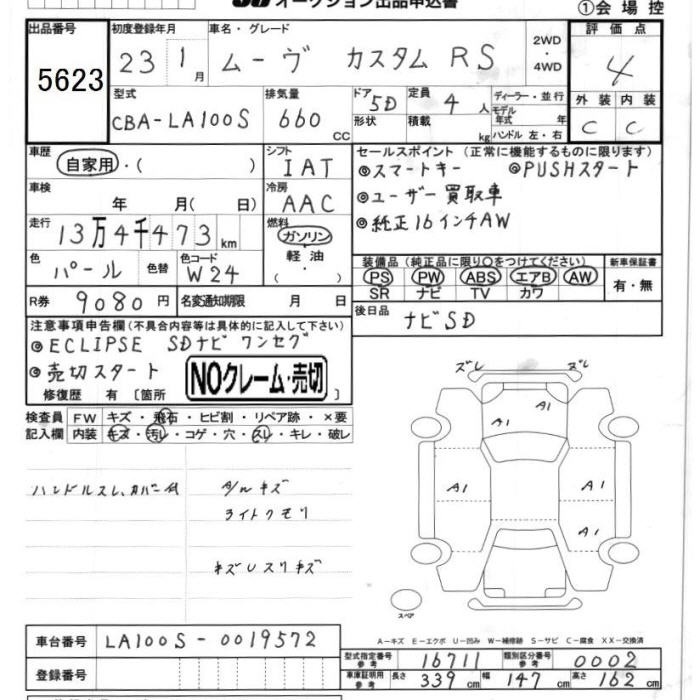 オークション出品申込書
①会場控
出品番号
5623
初度登録年月
23 1月
車名・グレード
ムーヴ カスタム RS
2WD・4WD
評価点
4
型式
CBA-LA100S
排気量
660 cc
ドア 5D
形状
定員 4人
積載 kg
ディーラー・並行
モデル年式 年
ハンドル 左・右
外装 内装
C C
車歴
自家用・( )
シフト
IAT
セールスポイント (正常に機能するものに限ります)
◎スマートキー ◎PUSHスタート
◎ユーザー買取車
◎純正16インチAW
車検
年 月( 日)
冷房
AAC
走行
13万4千473km
燃料
ガソリン・軽油・( )
色
パール
色替
色コード
W24
装備品 (純正品に限り○をつけてください)
PS PW ABS エアB AW
SR ナビ TV カワ
新車保証書
有・無
R券 9080円
名変通知期限 月 日
後日品
ナビSD
注意事項申告欄(不具合内容等は具体的に記入して下さい)
◎ECLIPSE SDナビ ワンセグ
◎売切スタート
NOクレーム・売切
修復歴 有 〔箇所 〕
検査員記入欄
FW キズ・飛石・ヒビ割・リペア跡・×要
内装 キズ・汚レ・コゲ・穴・スレ・キレ・破レ
ハンドルスレ、カバー付
A/W キズ
ライトクモリ
キズレスリキズ
ズレ ズレ
A1 A1
A1 A1
A1
スペア
A-キズ E-エクボ U-凹み W-補修跡 S-サビ C-腐食 XX-交換済
車台番号
LA100S-0019572
登録番号
型式指定番号 参考
16711
類別区分番号 参考
0002
車庫証明用 参考
長さ 339cm 幅 147cm 高さ 162cm